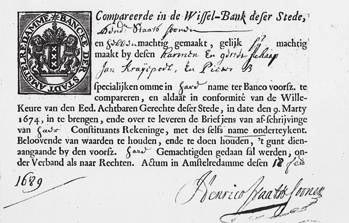 AMSTELREDAMME BANCKE DER STAT
Compareerde in de Wissel-Bank deser Stede,
Staats soonen
en machtig gemaakt, gelijk machtig
maakt by desen Harmen En
Jan En Pieter
specialijken omme in haere name ter Banco voorsz. te
compareren, en aldaar in conformité van de Wille-
Keure van den Eed. Achtbaren Gerechte deser Stede, in date den 9. Marty
1674, in te brengen, ende over te leveren de Briefjens van af-schrijvinge
van Constituants Rekeninge, met des selfs name onderteykent.
Beloovende van waarden te houden, ende te doen houden, 't gunt dien-
aangaande by den voorsz. Gemachtigden gedaan sal werden, on-
der Verband als naar Rechten. Actum in Amstelredamme desen 18
1689
Henrico Staats soonen